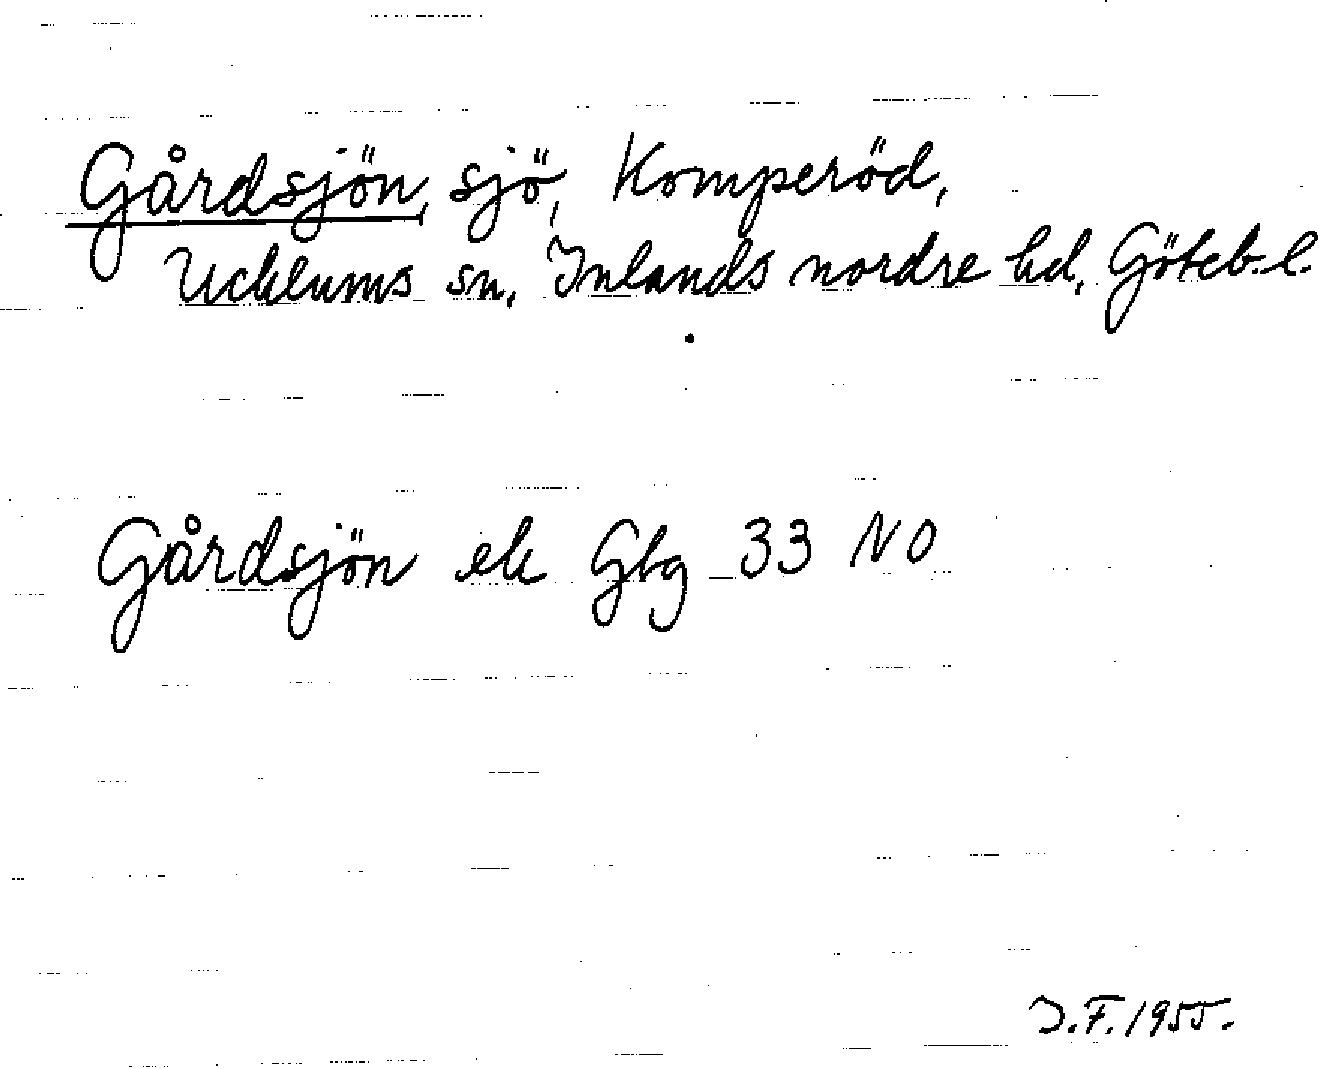 Gårdsjön, sjö, Komperöd,
Ucklums sn, Inlands nordre hd, Göteb. l.
Gårdsjön ek Gbg 33 NO
J.F. 1955.